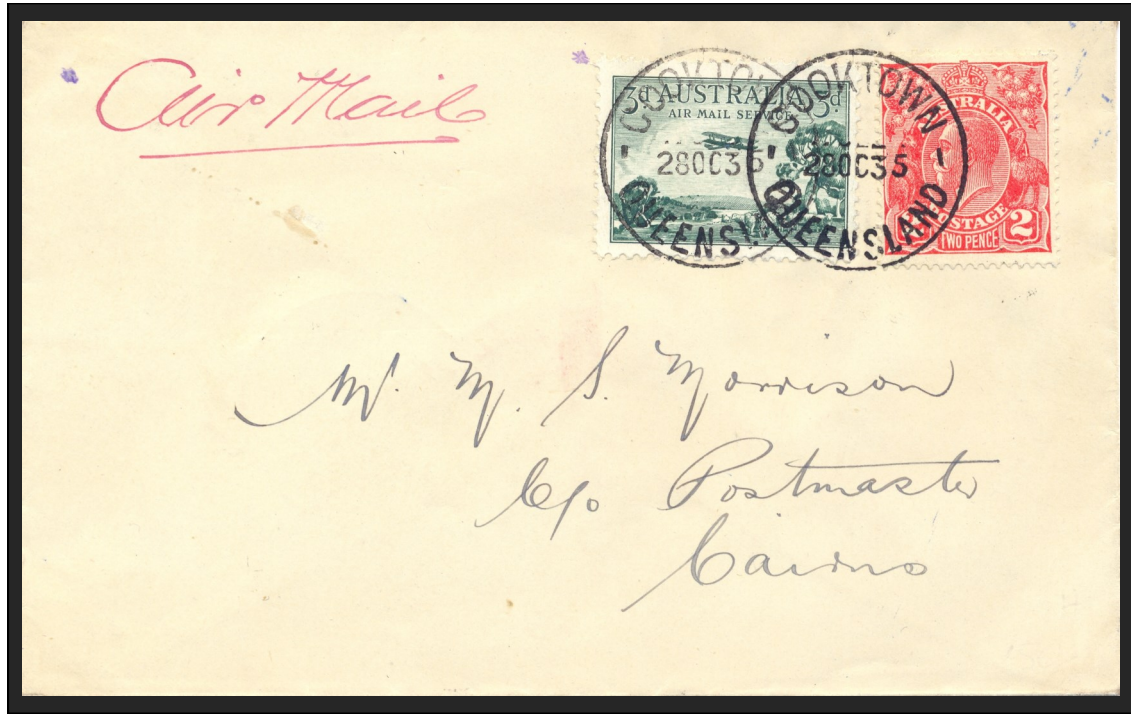 Air Mail
3d AUSTRALIA 3d
AIR MAIL SERVICE
COOKTOWN
28OC35
QUEENSLAND
COOKTOWN
28OC35
QUEENSLAND
AUSTRALIA
POSTAGE
TWO PENCE 2
Mr. M. S. Morrison
C/o Postmaster
Cairns